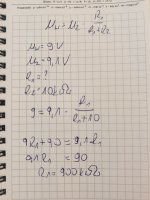 U₁ = U₂ · R₁ / (R₁ + R₂)
U₁ = 9 V
U₂ = 9,1 V
R₁ = ?
R₂ = 10 kΩ
9 = 9,1 · R₁ / (R₁ + 10)
9R₁ + 90 = 9,1 R₁
0,1 R₁ = 90
R₁ = 900 kΩ